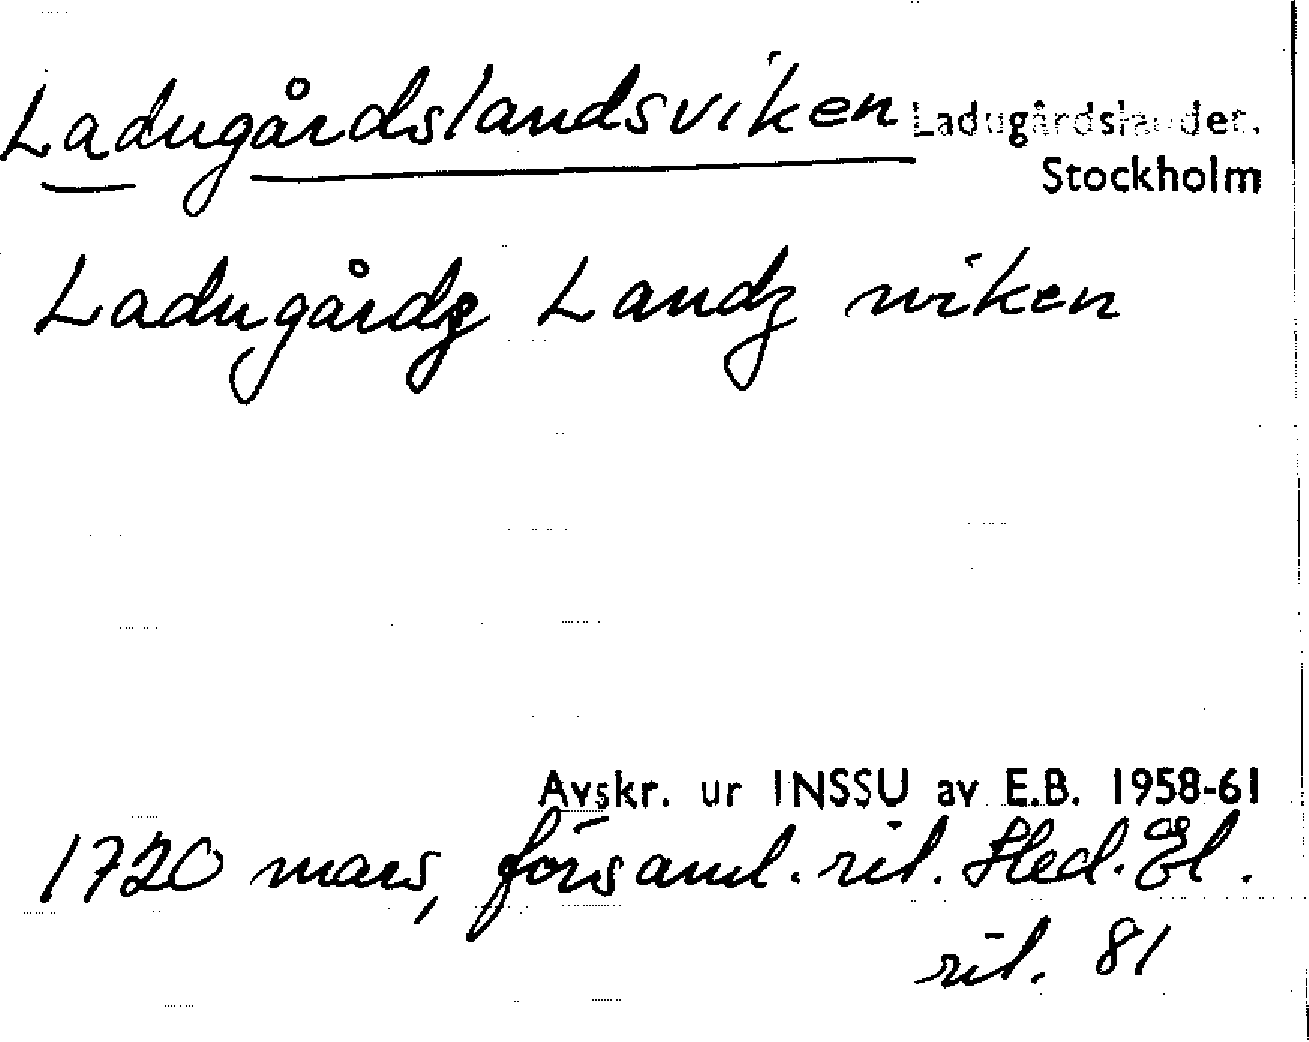 Ladugårdslandsviken Ladugårdslandet.
Stockholm
Ladugårdz Landz wiken
Avskr. ur INSSU av E.B. 1958-61
1720 mars, församl. ril. Hed. El.
ril. 81